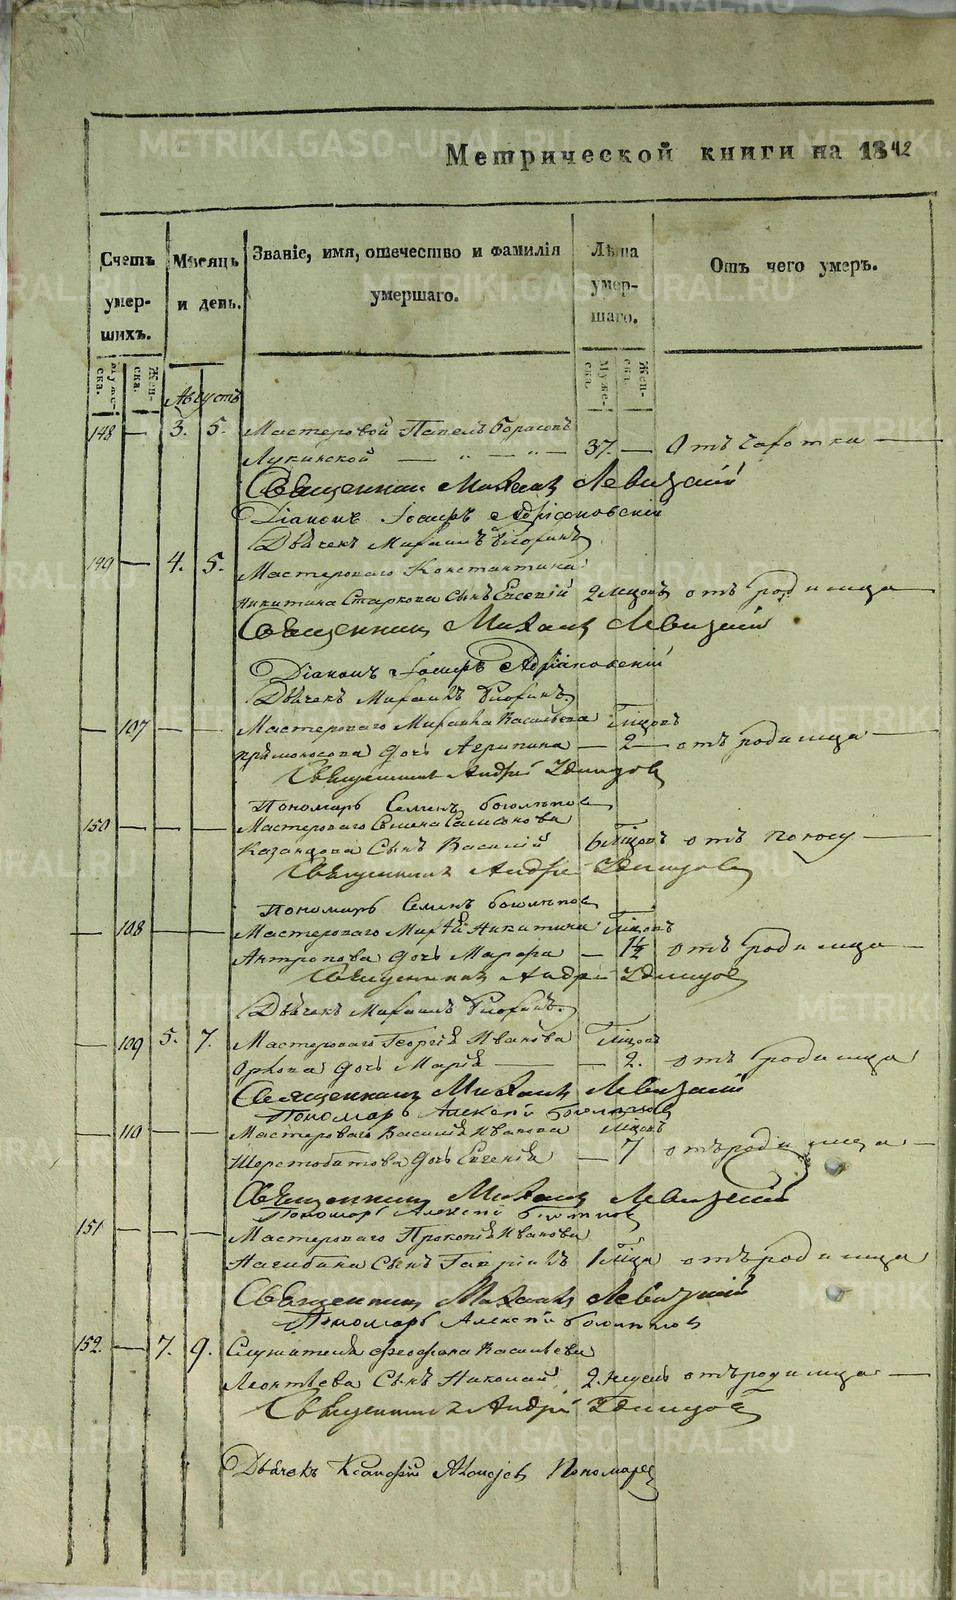 Метрической книги на 1842
Счетъ умер- шихъ.
Мѣсяцъ и день.
Званіе, имя, отечество и фамилія умершаго.
Лѣта умер- шаго.
Отъ чего умеръ.
Муже- ска. Жен- ска.
Муже- ска. Жен- ска.
Августъ
148 — 3. 5. Мастеровой Павелъ Борисовъ
Лукинской — " — " — 37. — Отъ чахотки —
Священник Михаилъ Левицкій
Діаконъ Іосифъ Адріановскій
Дьячекъ Михаилъ
149 — 4. 5. Мастероваго Константина
Никитина Старкова сынъ Евсевій 2 мцовъ отъ родимца —
Священник Михаилъ Левицкій
Діаконъ Іосифъ Адріановскій
Дьячекъ Михаилъ
— 107 — — Мастероваго Михаила Васильева мцовъ
дочь Агрипина — 2 — отъ родимца —
Священникъ Андрей Удинцов
Пономарь Семенъ Боголѣпов
150 — — — Мастероваго Семена Самсонова
Казанцова сынъ Василій 6 мцовъ отъ поносу —
Священникъ Андрей Удинцов
Пономарь Семенъ Боголѣпов
— 108 — — Мастероваго Никитина мцовъ
Антропова дочь Марфа — 1½ отъ родимца —
Священникъ Андрей Удинцов
Дьячекъ Михаилъ
— 109 5. 7. Мастероваго Георгія Иванова мцовъ
Орлова дочь Марія — — 2. отъ родимца
Священникъ Михаилъ Левицкій
Пономарь Алексѣй Боголѣпов
— 110 — — Мастероваго Василія Иванова мцовъ
Шерстобитова дочь Евгенія — 7 отъ родимца —
Священникъ Михаилъ Левицкій
Пономарь Алексѣй Боголѣпов
151 — — — Мастероваго Прокопія Иванова
Нагибина сынъ Гавріилъ 1 мца отъ родимца
Священник Михаилъ Левицкій
Пономарь Алексѣй Боголѣпов
152. — 7. 9. Служителя Феофана Васильева
Леонтьева сынъ Николай 2 недель отъ родимца —
Священникъ Андрей Удинцов
Дьячекъ Пономарев
METRIKI.GASO-URAL.RU